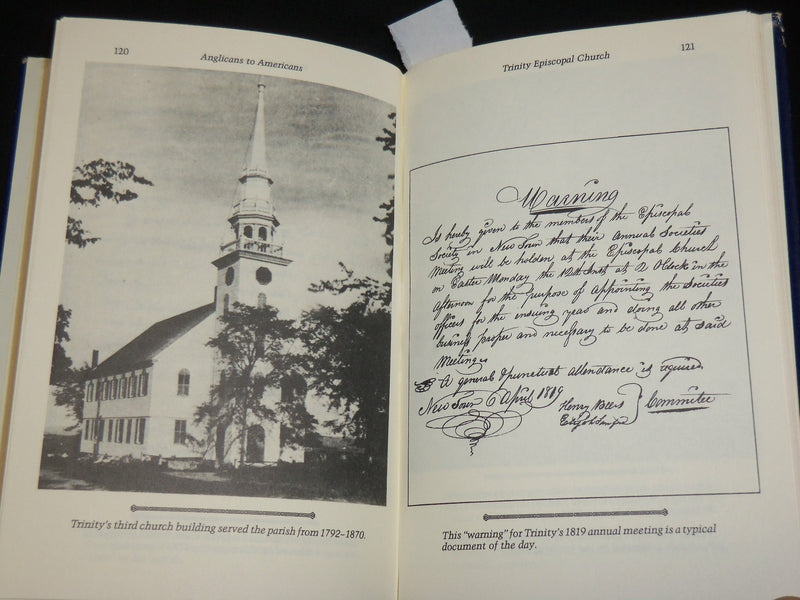 120
Anglicans to Americans
Trinity's third church building served the parish from 1792–1870.
Trinity Episcopal Church
121
Warning
Is hereby given to the members of the Episcopal
Society in New Town that their annual Societies
Meeting will be holden at the Episcopal Church
on Easter Monday the 12th Inst at 2 OClock in the
afternoon for the purpose of Appointing the Societies
officers for the insuing year and doing all other
business proper and necessary to be done at said
Meeting
A general & punctual attendance is required
New Town 6 April 1819
Henry Beers
Committee
This "warning" for Trinity's 1819 annual meeting is a typical
document of the day.